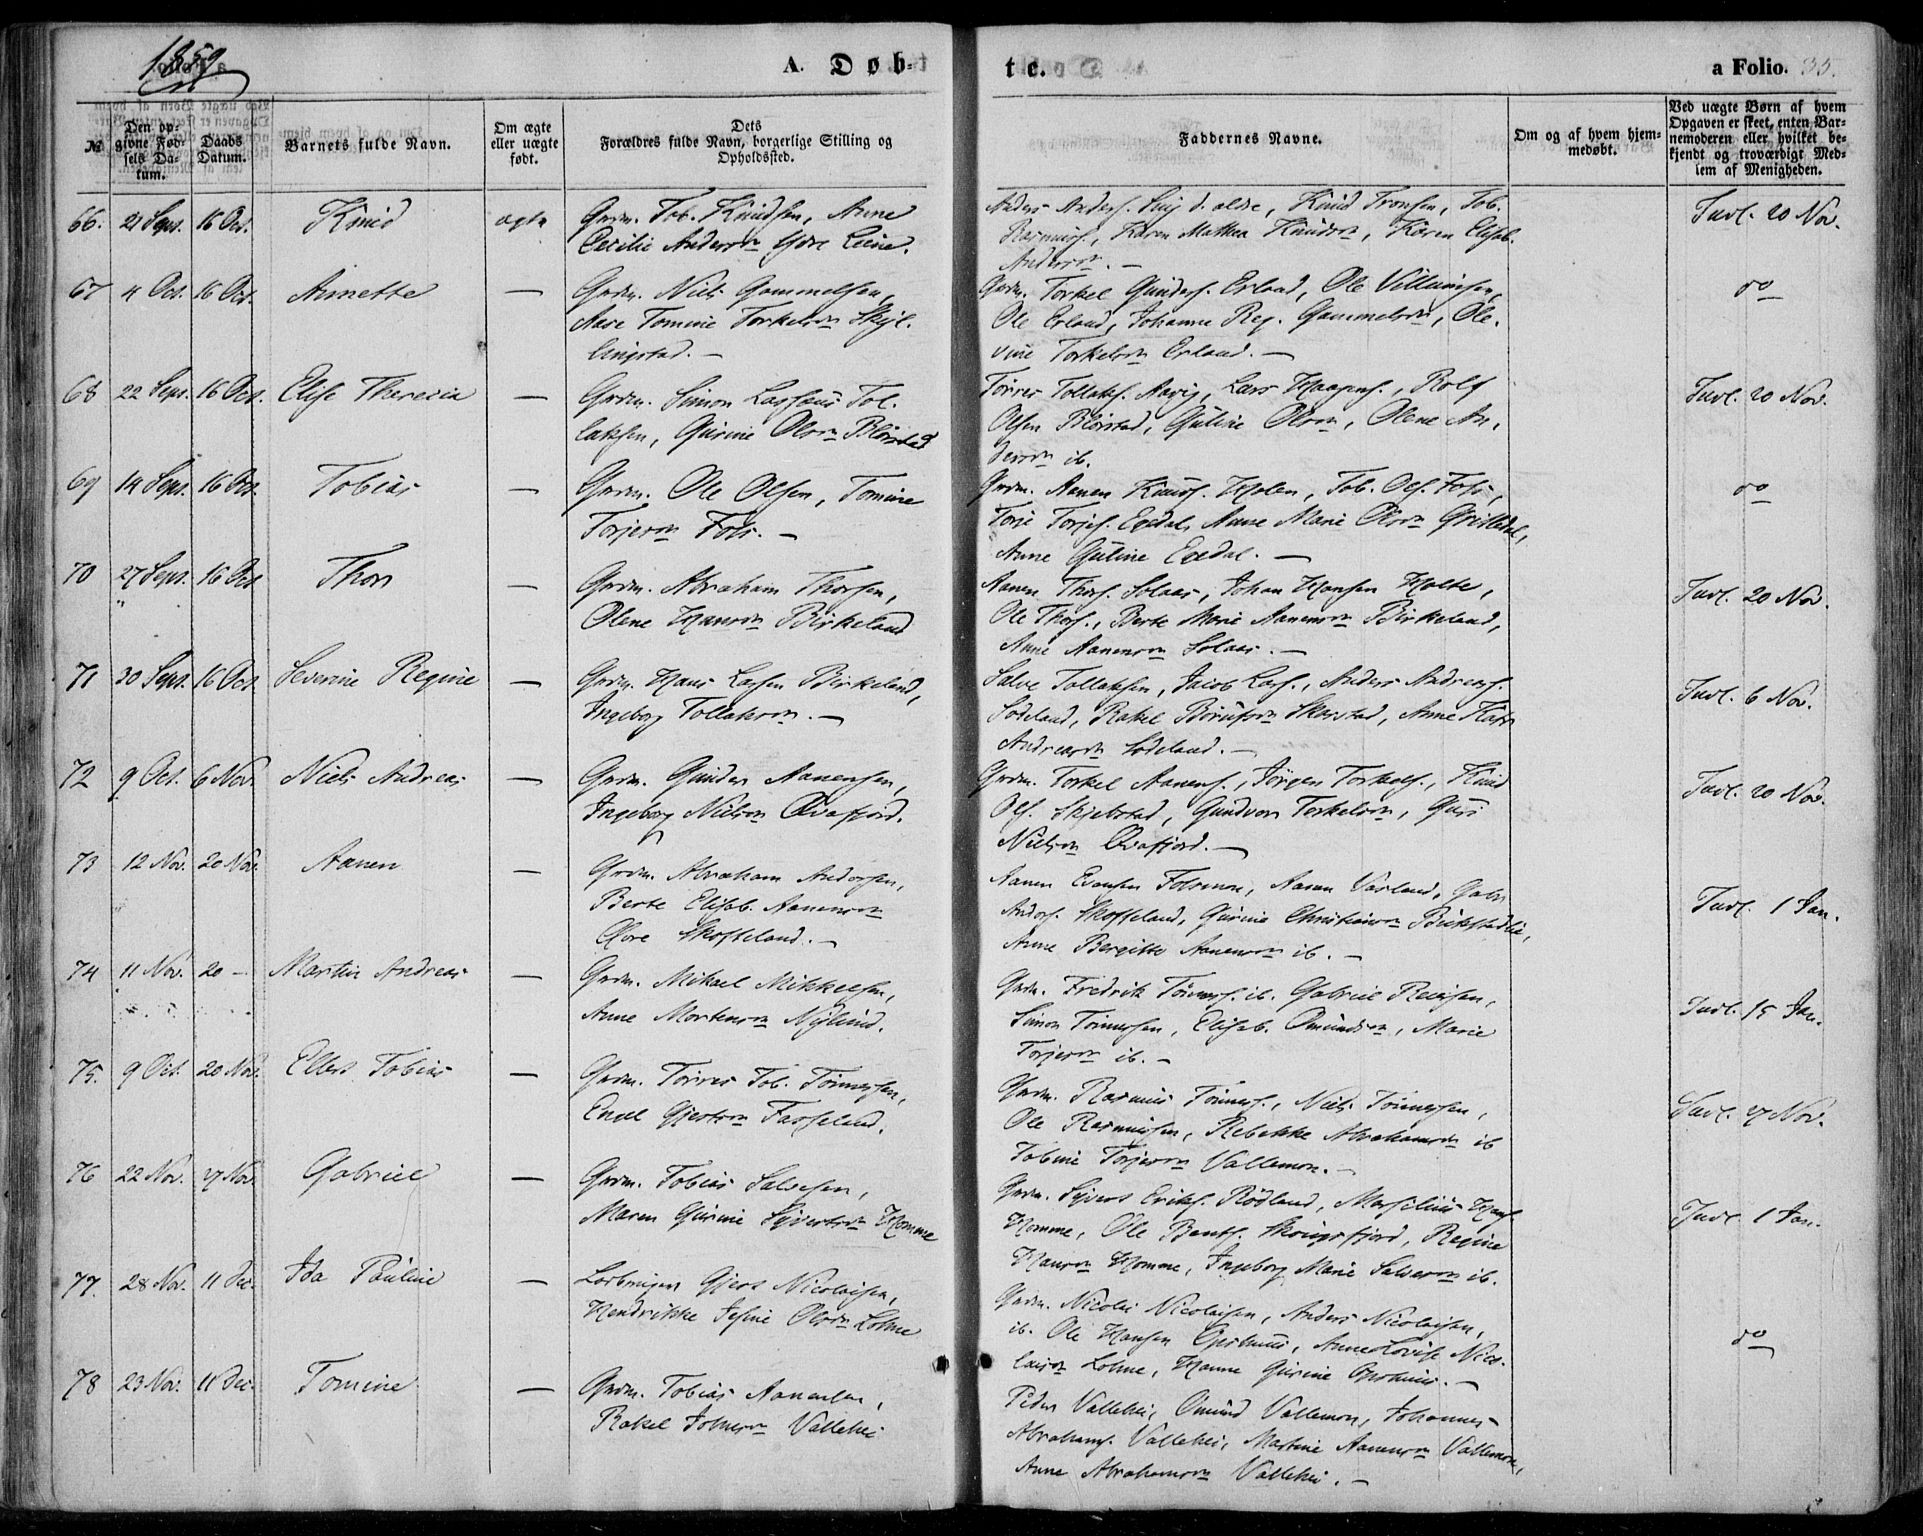 1859
A. Døb-
te.
a Folio. 35.
№
Den op-
givne Fød-
sels Da-
tum.
Daabs
Datum.
Barnets fulde Navn.
Om ægte
eller uægte
født.
Dets
Forældres fulde Navn, borgerlige Stilling og
Opholdssted.
Faddernes Navne.
Om og af hvem hjem-
medøbt.
Ved uægte Børn af hvem
Opgaven er skeet, enten Bar-
nemoderen eller hvilket be-
kjendt og troværdigt Med-
lem af Menigheden.
66. 21 Sept. 16 Oct. Knud ægte Grdm. Tob. Knudsen, Anne
Cecilie Andersdr Øvre Leine.
Anders Anders. d. ældre, Knud Tronsen, Tob.
Rasmus., Karen Mathea Knudsdr, Karen Elisab.
Andersdr. —
Indl. 20 Nov.
67 4 Oct. 16 Oct. Annette — Grdm. Niels Gammelsen,
Aase Tomine Torkelsdr Skjl.
lingstad. —
Grdm. Torkel Gunders. Erland, Ole Villumsen,
Ole Erland, Johanne Reg. Gammelsdr, Ole-
vine Torkelsdr Erland. —
do
68 22 Sept. 16 Oct. Elise Theresia — Grdm. Simon Tol-
laksen, Gurine Olsdr Blørstad
Tørres Tollaks. Aavig, Lars Haagens., Rolf
Olsen Blørstad, Guline Olsdr, Olene An-
dersdr ib.
Indl. 20 Nov.
69 14 Sept. 16 Oct. Tobias — Grdm. Ole Olsen, Tomine
Torjersdr Foss. —
Grdm. Aanen Knuds. Holen, Tob. Ols. Foss,
Torje Torjes. Egedal, Anne Marie Olsdr
Anne Guline Egedal. —
do
70 27 Sept. 16 Oct. Thor — Grdm. Abraham Thorsen,
Olene Hansdr Birkeland
Aanen Thors. Solaas, Johan Hansen Holte,
Ole Thors., Berte Marie Aanensdr Birkeland,
Anne Aanensdr Solaas. —
Indl. 20 Nov.
71 30 Sept. 16 Oct. Severine Regine — Grdm. Hans Larsen Birkeland,
Ingeborg Tollaksdr. —
Salve Tollaksen, Jacob Lars., Anders Andreas.
Sødeland, Rakel Skarstad, Anne
Andreasdr Sødeland. —
Indl. 6 Nov.
72 9 Oct. 6 Nov. Niels Andreas — Grdm. Gunder Aanensen,
Ingeborg Nielsdr Øvafjord.
Grdm. Torkel Aanens., Jørgen Torkels., Knud
Ols. Skjebstad, Gundvor Torkelsdr, Guri
Nielsdr Øvafjord. —
Indl. 20 Nov.
73 12 Nov. 20 Nov. Aanen — Grdm. Abraham Andorsen,
Berte Elisab. Aanensdr
Øvre Skofteland. —
Aanen Evensen, Aanen Varland, Gabr
Andors. Skofteland, Gurine Christiansdr
Anne Bergitte Aanensdr ib. —
Indl. 1 Jan.
74 11 Nov. 20 — Martin Andreas — Grdm. Mikael Mikkelsen,
Anne Mortensdr Nylund.
Grdm. Fredrik Tønnes. ib. Gabriel Reiersen,
Simon Tønnessen, Elisab. Omundsdr, Marie
Torjersdr ib. —
Indl. 15 Jan.
75. 9 Oct. 20 Nov. Ellert Tobias — Grdm. Tørres Tob. Tønnessen,
Engel Gjertsdr Fasseland.
Grdm. Rasmus Tønnes., Niels Tønnessen,
Ole Rasmussen, Rebekke Abrahamsdr ib
Tobine Torjersdr Vallemon. —
Indl. 27 Nov.
76 22 Nov. 27 Nov. Gabriel — Grdm. Tobias Salvesen,
Maren Gurine Syvertsdr Homme
Grdm. Syvert Eriks. Rødland, Marselius Hans.
Homme, Ole Bents. Skougsfjord, Regine
Hansdr Homme, Ingeborg Marie Salvesdr ib.
Indl. 1 Jan.
77. 28 Nov. 11 Dec. Ida Pauline — Gjert Nicolaisen,
Hendrikke Jesine Olsdr Lohne
Grdm. Nicolai Nicolaisen, Anders Nicolaisen,
ib. Ole Hansen Opshuus, Anne Lovise Nico-
laisdr Lohne, Hanne Gurine Opshuus. —
do
78 23 Nov. 11 Dec. Tomine — Grdm. Tobias Aanensen,
Rakel Johnsdr Vallehei
Peder Vallehei, Omund Vallemon, Johannes
Abrahams. Vallehei, Martine Aanensdr Vallemon,
Anne Abrahamsdr Vallehei. —